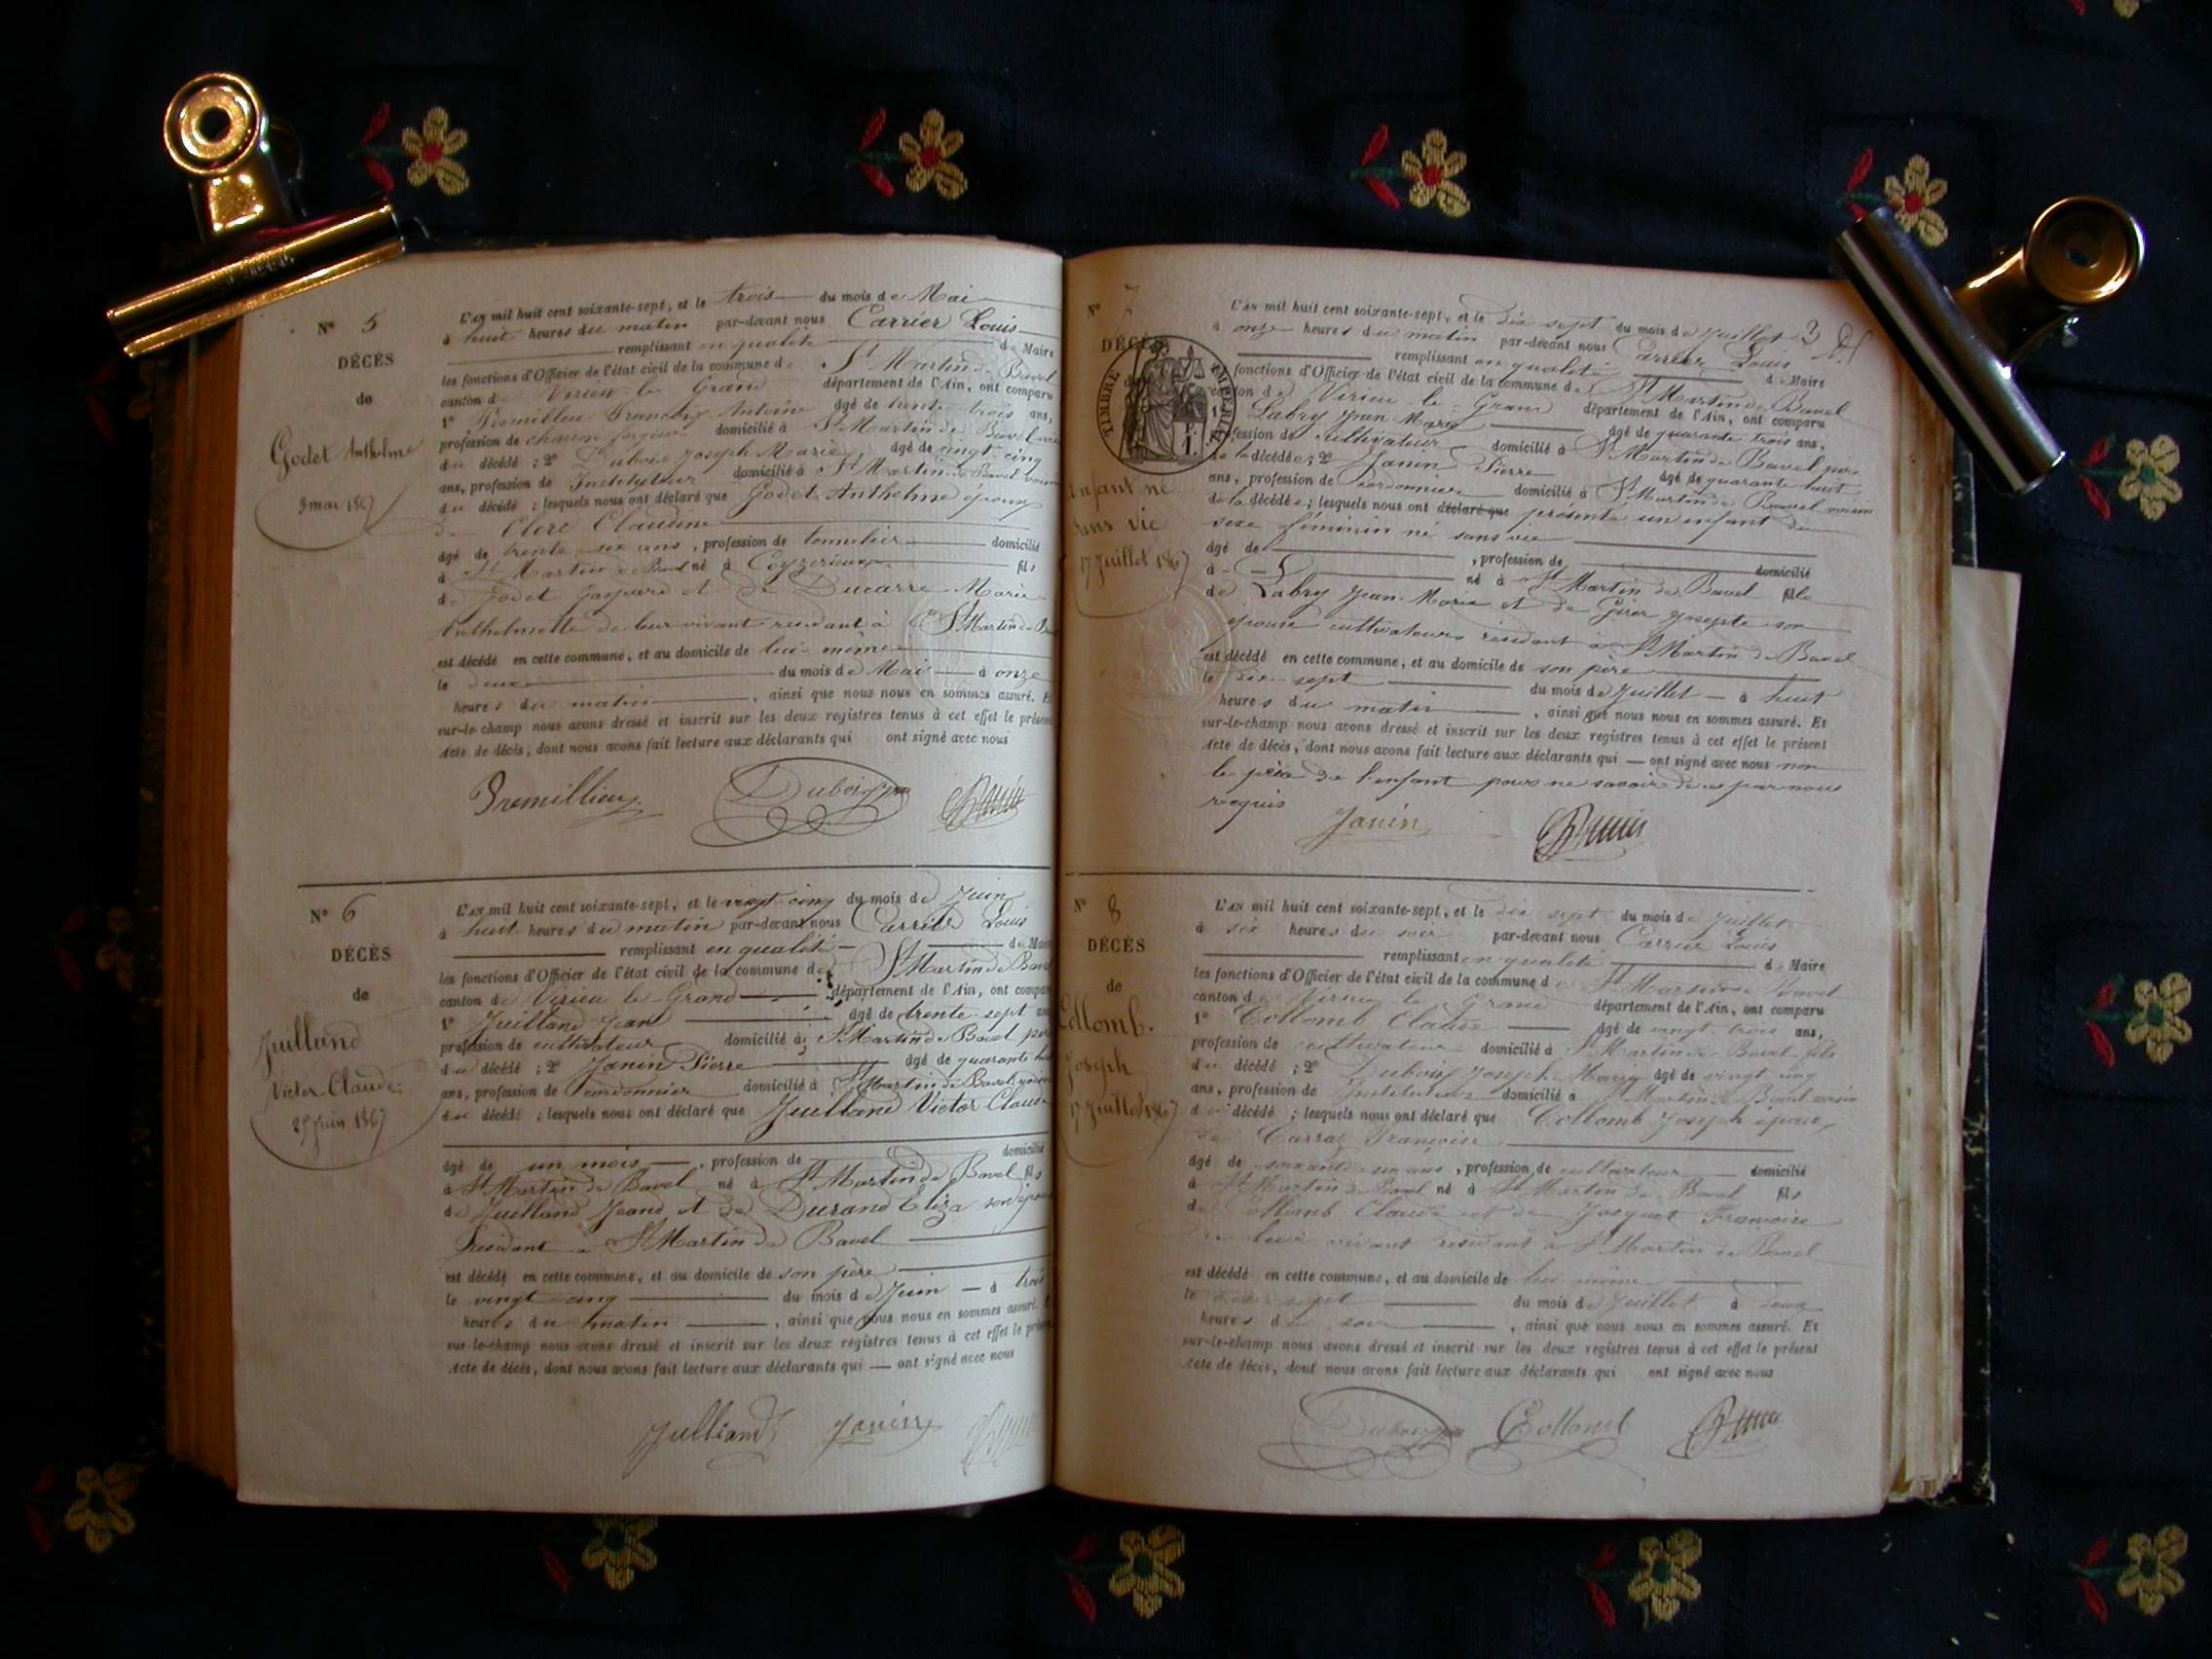 N° 5
DÉCÈS
de
Godet Anthelme
3 mai 1867
L'AN mil huit cent soixante-sept, et le trois du mois de Mai
à huit heures du matin par-devant nous Carrier Louis
remplissant en qualité de Maire
les fonctions d'Officier de l'état civil de la commune de St Martin de Bavel
canton de Virieu le Grand département de l'Ain, ont comparu
1° Antoine âgé de trente trois ans,
profession de charron forgeur domicilié à St Martin de Bavel
du décédé ; 2° Dubois Joseph Marie âgé de vingt cinq
ans, profession de Instituteur domicilié à St Martin de Bavel voisin
du décédé ; lesquels nous ont déclaré que Godet Anthelme époux
de Clerc Claudine
âgé de trente six ans, profession de tonnelier domicilié
à St Martin de Bavel né à Ceyzerieux fils
de Godet Gaspard et de Ducarre Marie
Anthelmette de leur vivant residant à St Martin de
est décédé en cette commune, et au domicile de lui-même
le deux du mois de Mai à onze
heures du matin, ainsi que nous nous en sommes assuré. Et
sur-le-champ nous avons dressé et inscrit sur les deux registres tenus à cet effet le présent
Acte de décès, dont nous avons fait lecture aux déclarants qui ont signé avec nous
Dubois
N° 6
DÉCÈS
de
Juilland
Victor Claude
25 Juin 1867
L'AN mil huit cent soixante-sept, et le vingt cinq du mois de Juin
à huit heures du matin par-devant nous Carrier Louis
remplissant en qualité de Maire
les fonctions d'Officier de l'état civil de la commune de St Martin de Bavel
canton de Virieu le Grand département de l'Ain, ont comparu
1° Juilland Jean âgé de trente sept ans
profession de cultivateur domicilié à St Martin de Bavel père
du décédé ; 2° Janin Pierre âgé de quarante huit
ans, profession de cordonnier domicilié à St Martin de Bavel voisin
du décédé ; lesquels nous ont déclaré que Juilland Victor Claude
âgé de un mois, profession de domicilié
à St Martin de Bavel né à St Martin de Bavel fils
de Juilland Jean et de Durand Eliza son épouse
Residant à St Martin de Bavel
est décédé en cette commune, et au domicile de son père
le vingt cinq du mois de Juin à trois
heures du matin, ainsi que nous nous en sommes assuré.
sur-le-champ nous avons dressé et inscrit sur les deux registres tenus à cet effet le présent
Acte de décès, dont nous avons fait lecture aux déclarants qui — ont signé avec nous
Julliand Janin
N° 7
DÉCÈS
TIMBRE IMPÉRIAL
Enfant né
sans vie
17 Juillet 1867
L'AN mil huit cent soixante-sept, et le dix sept du mois de Juillet 3
à onze heures du matin par-devant nous Carrier Louis
remplissant en qualité de Maire
fonctions d'Officier de l'état civil de la commune de St Martin de Bavel
canton de Virieu le Grand département de l'Ain, ont comparu
1° Labry Jean Marie âgé de quarante trois ans,
profession de cultivateur domicilié à St Martin de Bavel père
de la décédée ; 2° Janin Pierre âgé de quarante huit
ans, profession de cordonnier domicilié à St Martin de Bavel voisin
de la décédée ; lesquels nous ont déclaré que présenté un enfant du
sexe féminin né sans vie
âgé de , profession de domicilié
à né à St Martin de Bavel fille
de Labry Jean-Marie et de Josepte son
épouse cultivateurs résidant à St Martin de Bavel
est décédé en cette commune, et au domicile de son père
le dix sept du mois de Juillet à huit
heures du matin, ainsi que nous nous en sommes assuré. Et
sur-le-champ nous avons dressé et inscrit sur les deux registres tenus à cet effet le présent
Acte de décès, dont nous avons fait lecture aux déclarants qui — ont signé avec nous non
le père de l'enfant pour ne savoir de ce par nous
requis
Janin
N° 8
DÉCÈS
de
Collomb
Joseph
17 Juillet 1867
L'AN mil huit cent soixante-sept, et le dix sept du mois de Juillet
à six heures du soir par-devant nous Carrier Louis
remplissant en qualité de Maire
les fonctions d'Officier de l'état civil de la commune de St Martin de Bavel
canton de Virieu le Grand département de l'Ain, ont comparu
1° Collomb Claude âgé de vingt trois ans,
profession de cultivateur domicilié à St Martin de Bavel fils
du décédé ; 2° Dubois Joseph Marie âgé de vingt cinq
ans, profession de Instituteur domicilié à St Martin de Bavel voisin
du décédé ; lesquels nous ont déclaré que Collomb Joseph époux
de Carraz Françoise
âgé de soixante un ans, profession de cultivateur domicilié
à St Martin de Bavel né à St Martin de Bavel fils
de Collomb Claude et de Jacquet Françoise
de leur vivant residant à St Martin de Bavel
est décédé en cette commune, et au domicile de lui même
le dix sept du mois de Juillet à deux
heures du soir, ainsi que nous nous en sommes assuré. Et
sur-le-champ nous avons dressé et inscrit sur les deux registres tenus à cet effet le présent
Acte de décès, dont nous avons fait lecture aux déclarants qui ont signé avec nous
Dubois Collomb